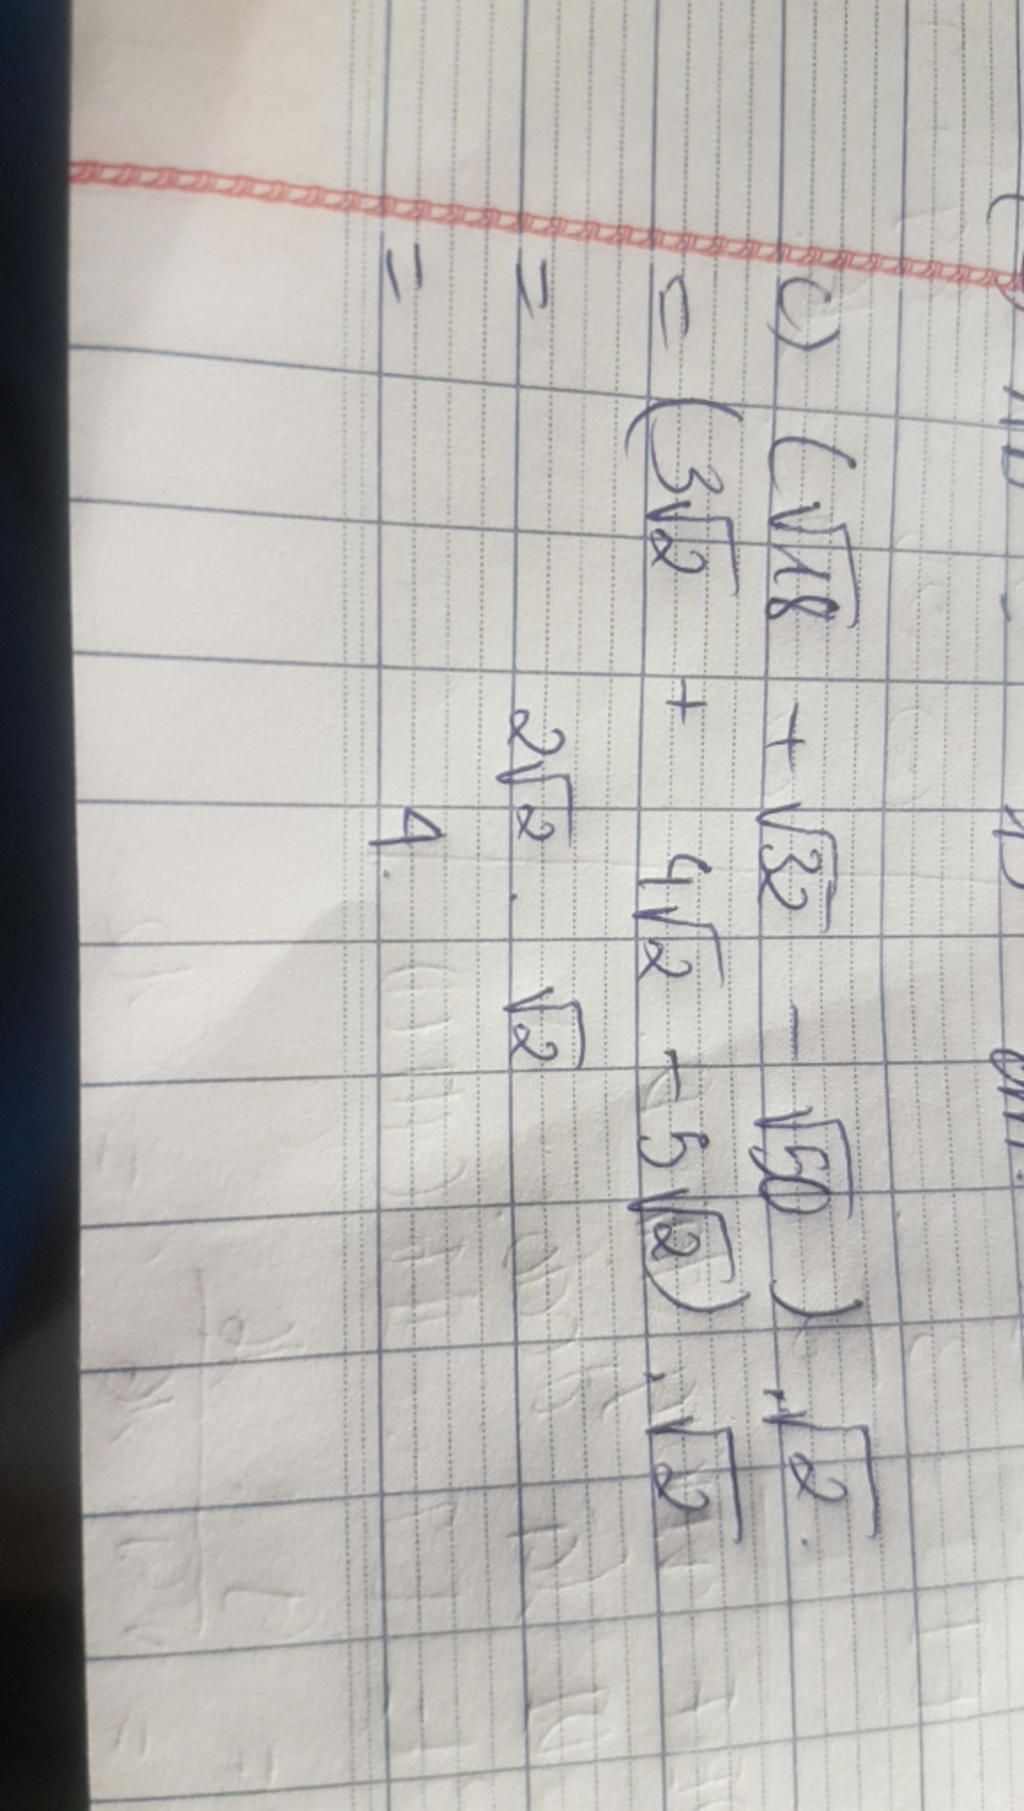 c) (√18 + √32 - √50) . √2.
= (3√2 + 4√2 - 5√2) . √2
= 2√2 . √2
= 4.